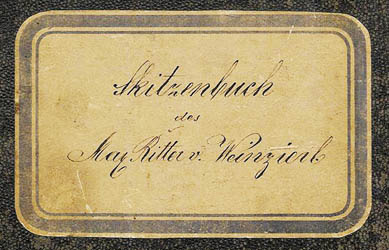 Skitzenbuch
des
Max Ritter v. Weinzierl